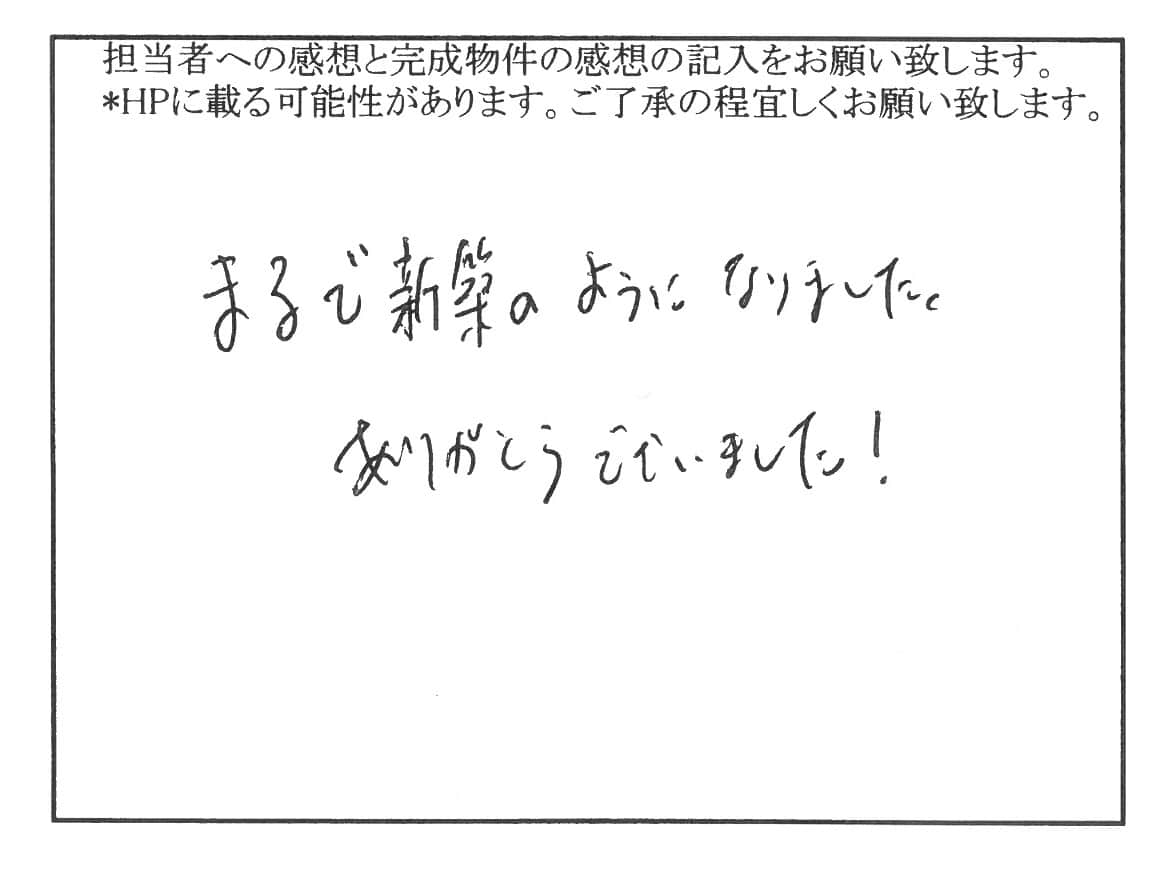 担当者への感想と完成物件の感想の記入をお願い致します。
*HPに載る可能性があります。ご了承の程宜しくお願い致します。
まるで新築のようになりました。
ありがとうございました!